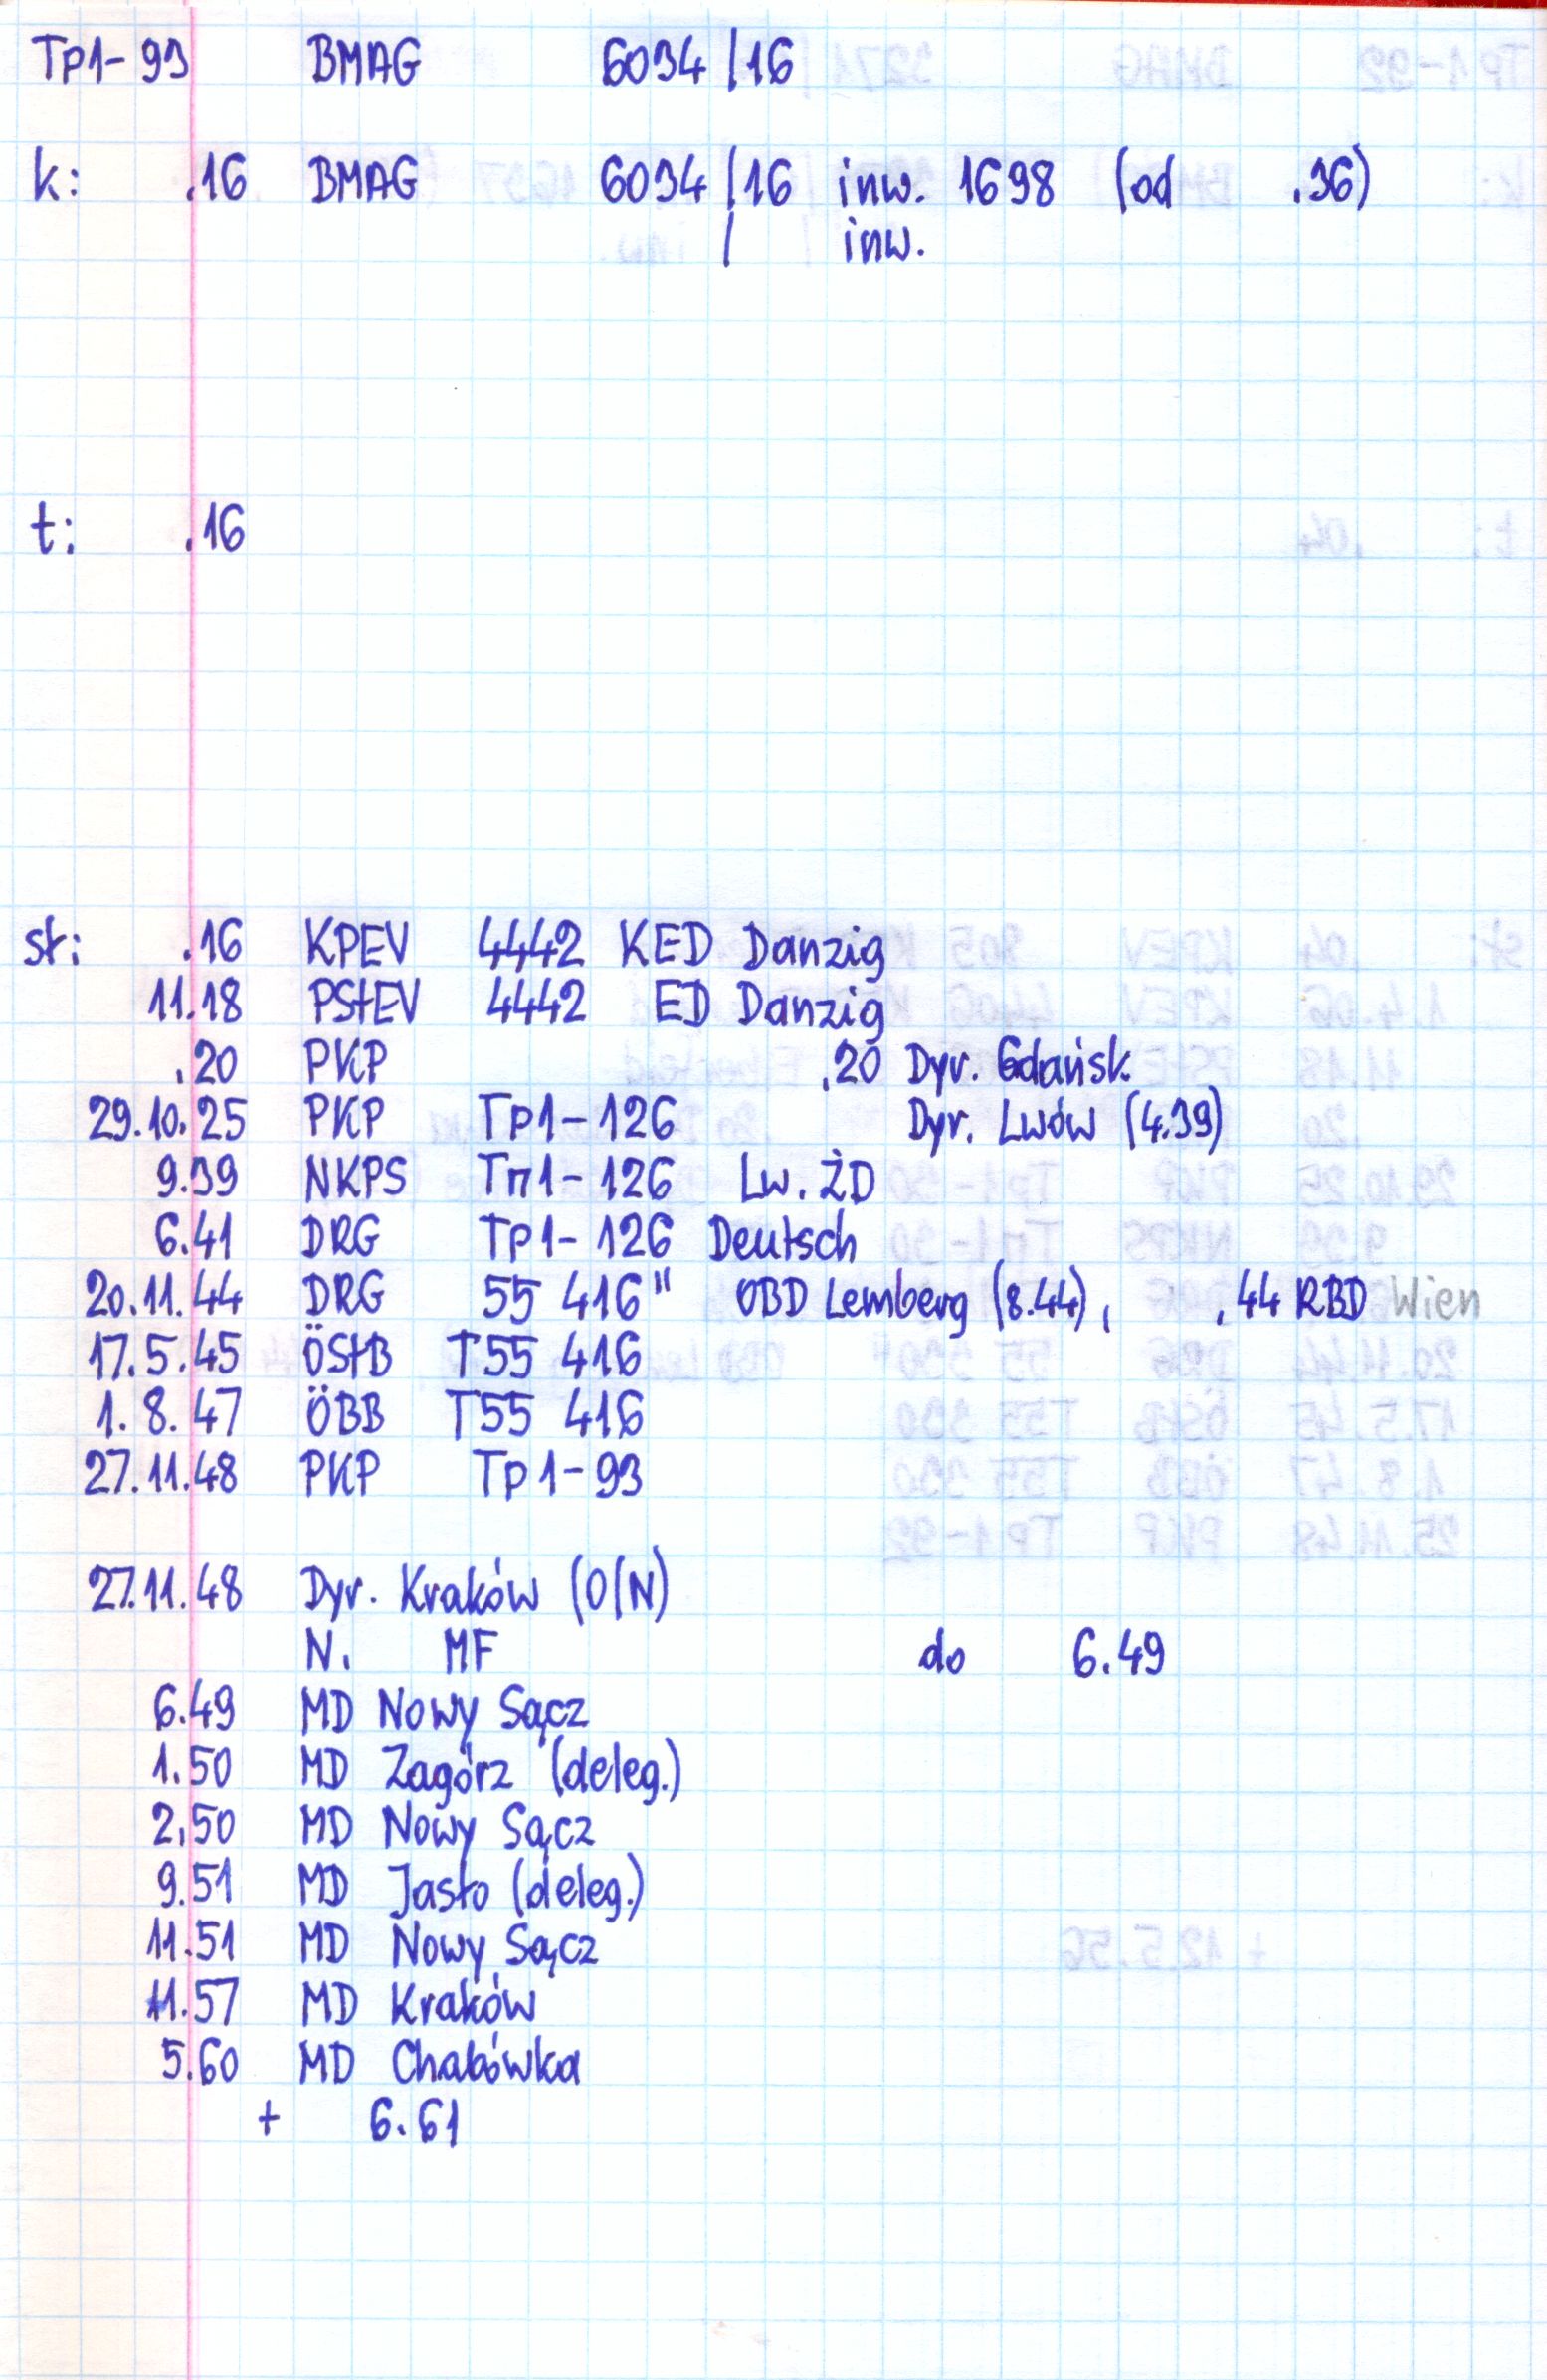 Tp1-93 BMAG 6034/16
k: .16 BMAG 6034/16 inw. 1698 (od .36)
/ inw.
t: .16
st: .16 KPEV 4442 KED Danzig
11.18 PStEV 4442 ED Danzig
.20 PKP .20 Dyr. Gdańsk
29.10.25 PKP Tp1-126 Dyr. Lwów (4.39)
9.39 NKPS Тп1-126 Lw. ŻD
6.41 DRG Tp1-126 Deutsch
20.11.44 DRG 55 416" OBD Lemberg (8.44), .44 RBD Wien
17.5.45 ÖStB T55 416
1.8.47 ÖBB T55 416
27.11.48 PKP Tp1-93
27.11.48 Dyr. Kraków (O/N)
N. MF do 6.49
6.49 MD Nowy Sącz
1.50 MD Zagórz (deleg.)
2.50 MD Nowy Sącz
9.51 MD Jasło (deleg.)
11.51 MD Nowy Sącz
11.57 MD Kraków
5.60 MD Chabówka
+ 6.61